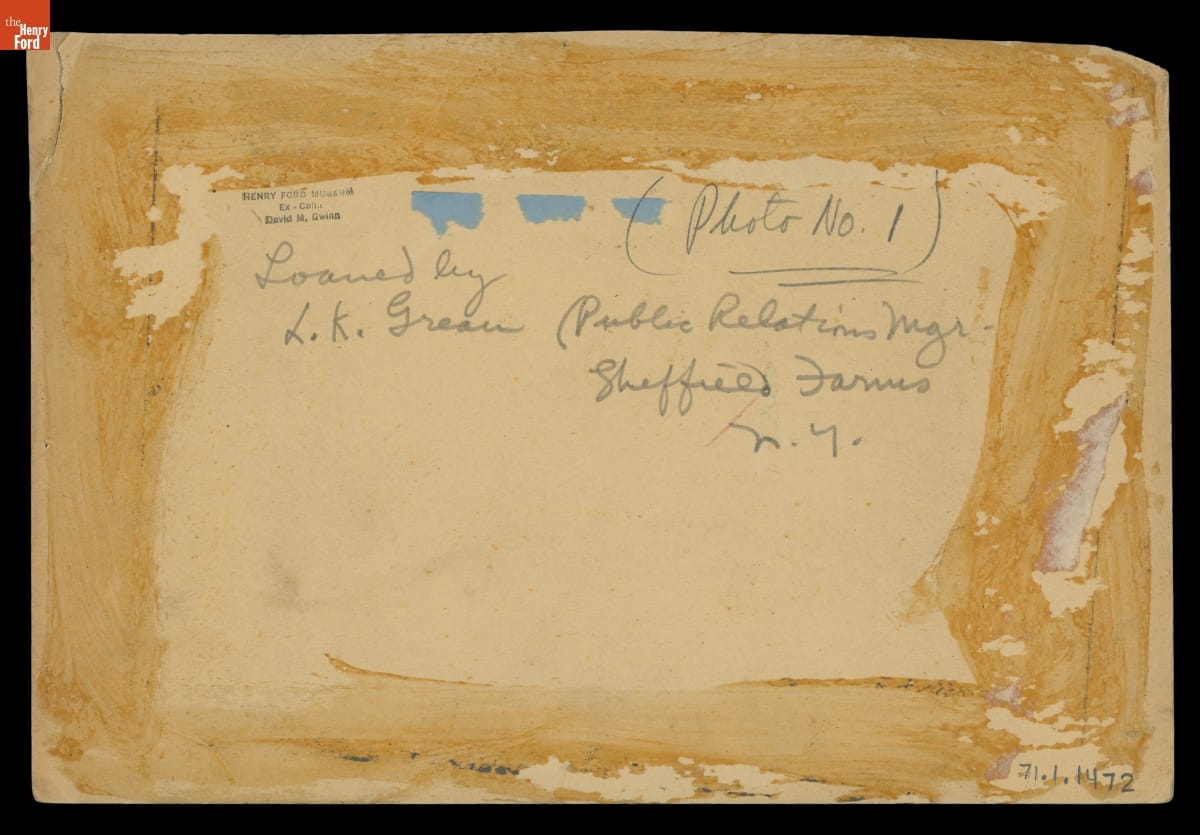 the
Henry
Ford
HENRY FORD MUSEUM
Ex - Coll.:
David M. Gwinn
(Photo No. 1)
Loaned by
L. K. Grean (Public Relations Mgr-
Sheffield Farms
N. Y.
71.1.1472